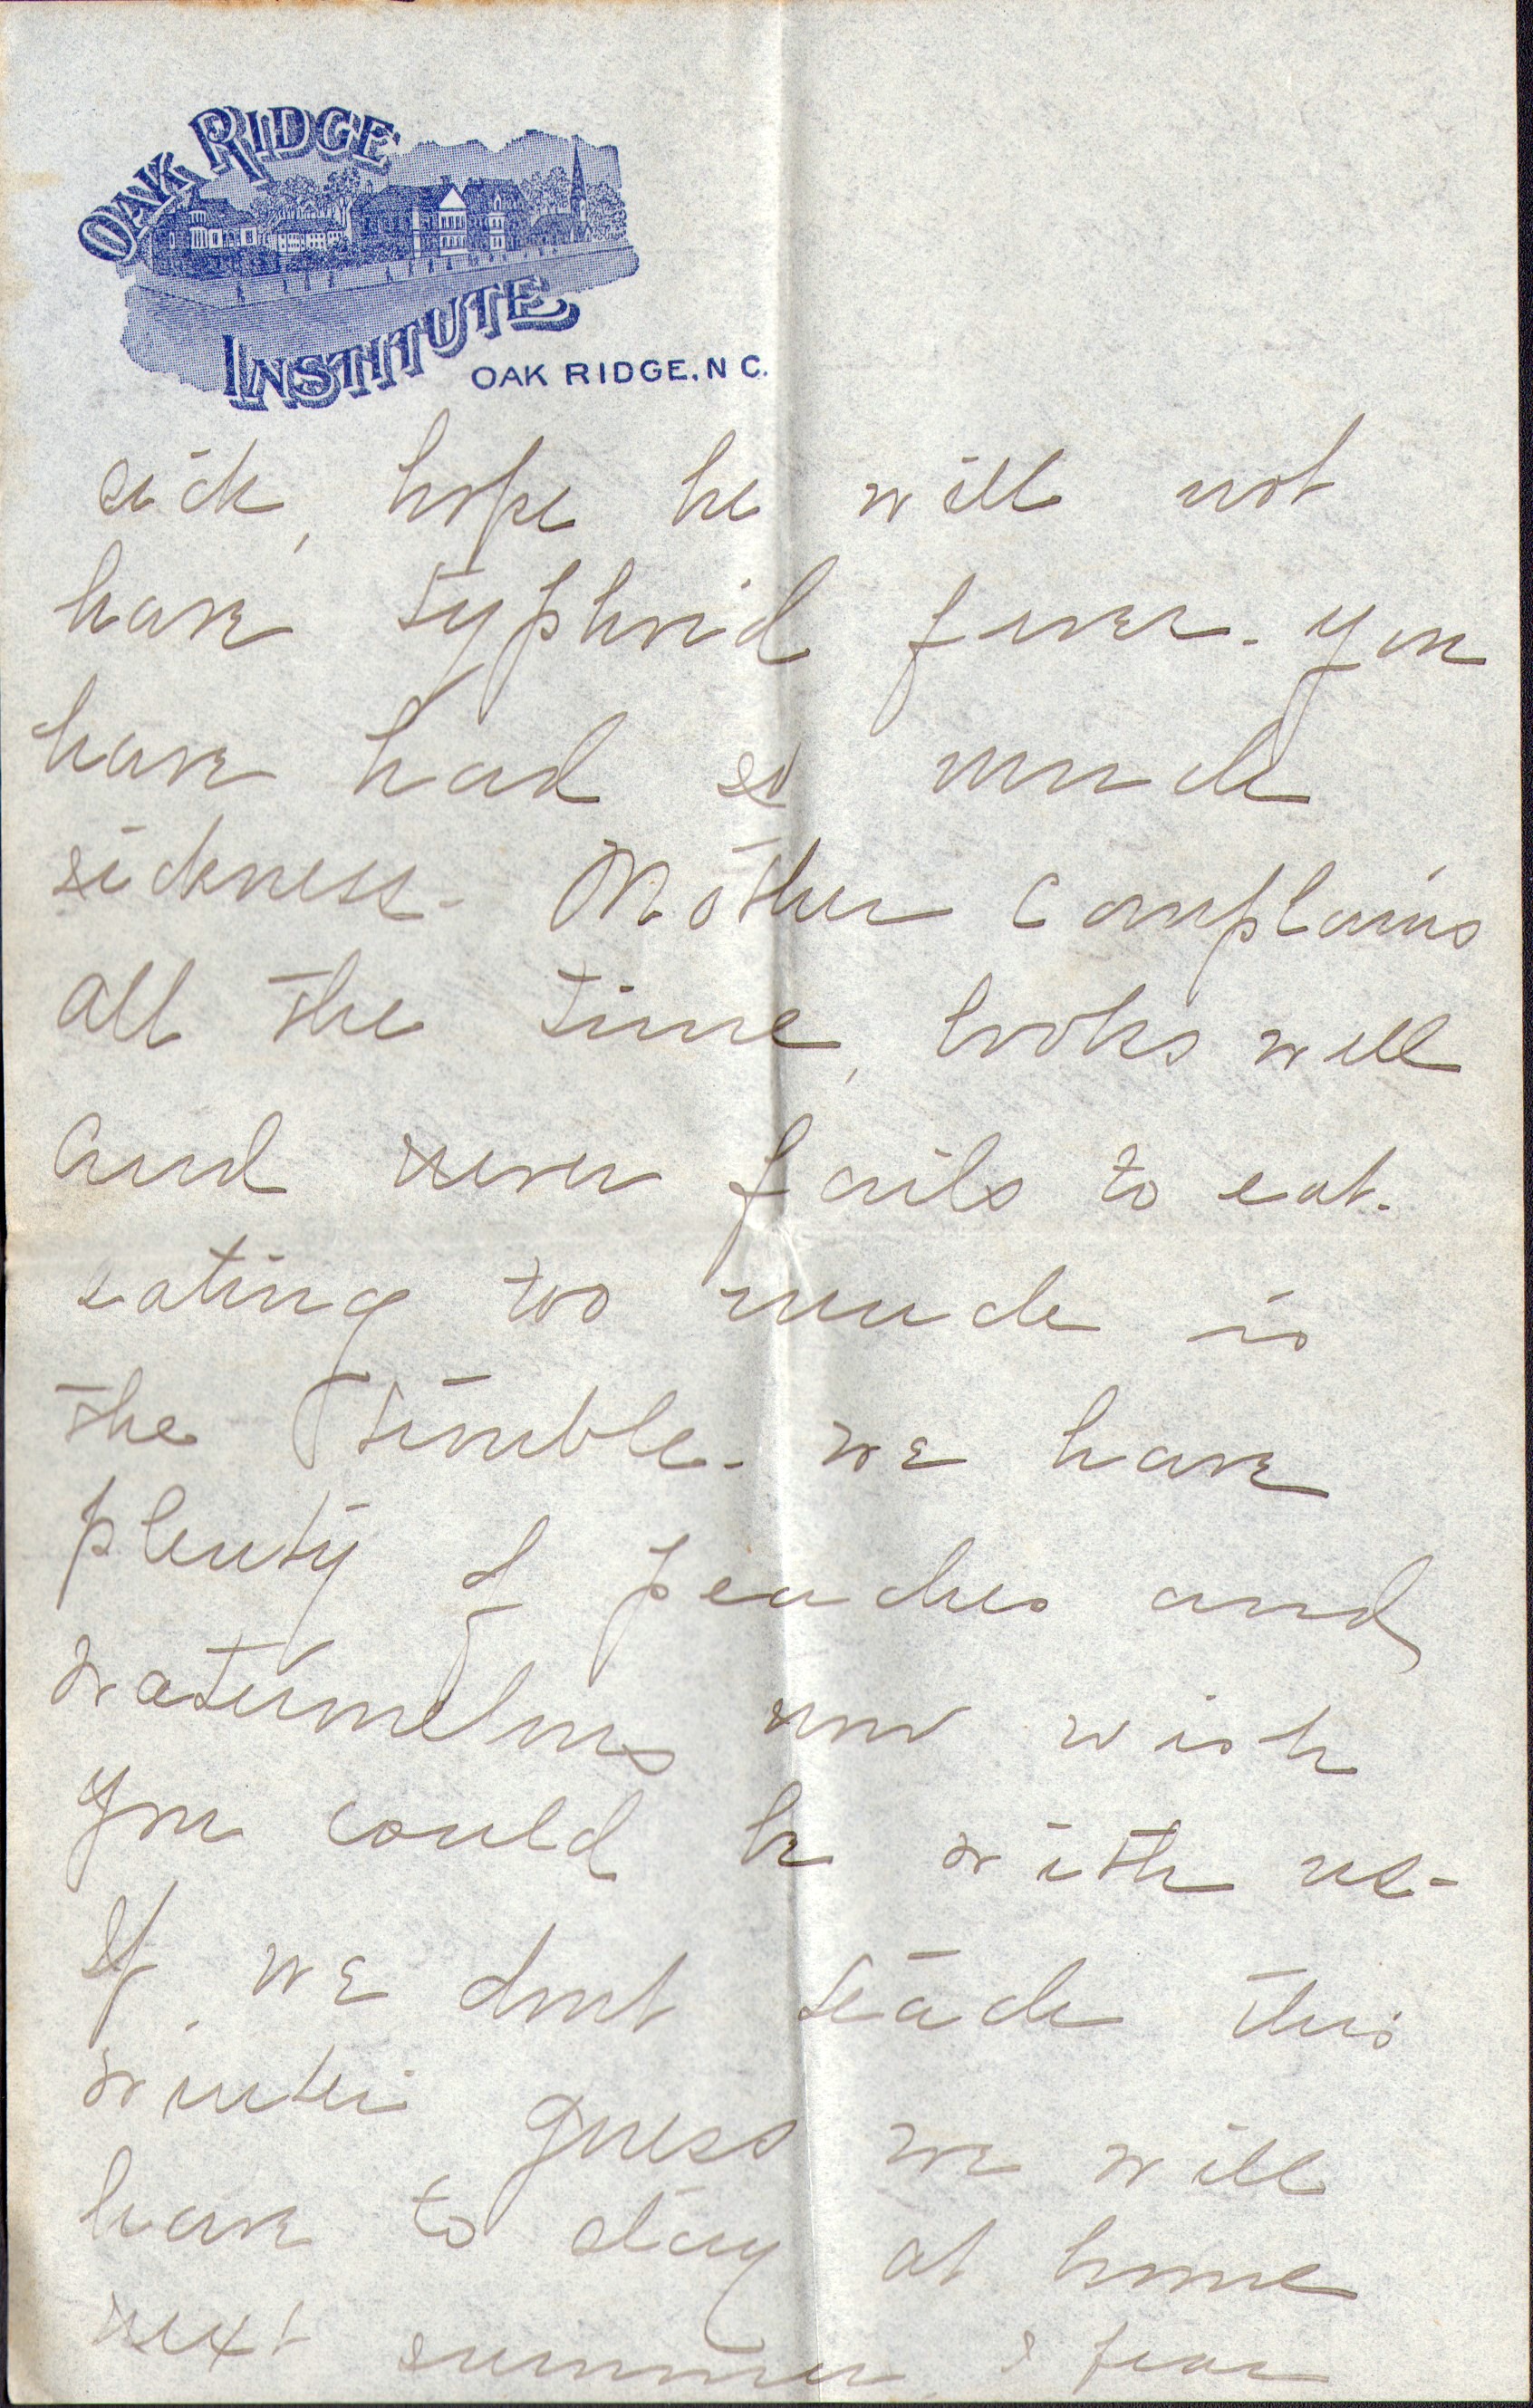 OAK RIDGE
INSTITUTE
OAK RIDGE, N C.
sick, hope he will not
have typhoid fever. you
have had so much
sickness. Mother complains
all the time, looks well
and never fails to eat.
eating too much is
the trouble. we have
plenty of peaches and
watermelons now wish
you could be with us-
If we dont teach this
winter guess we will
have to stay at home
next summer, I fear